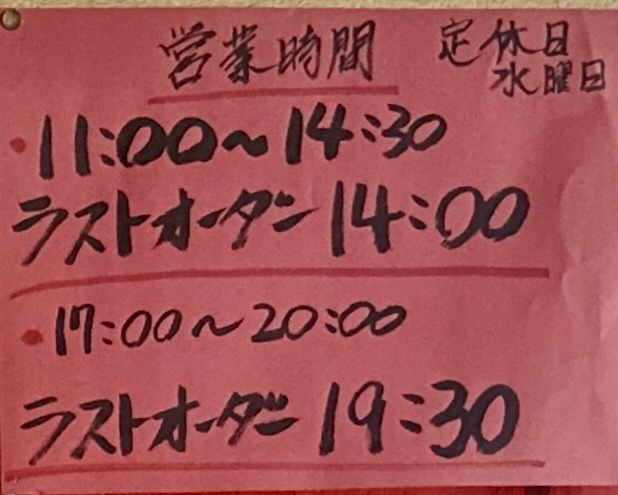 営業時間
定休日
水曜日
・11:00〜14:30
ラストオーダー 14:00
・17:00〜20:00
ラストオーダー 19:30